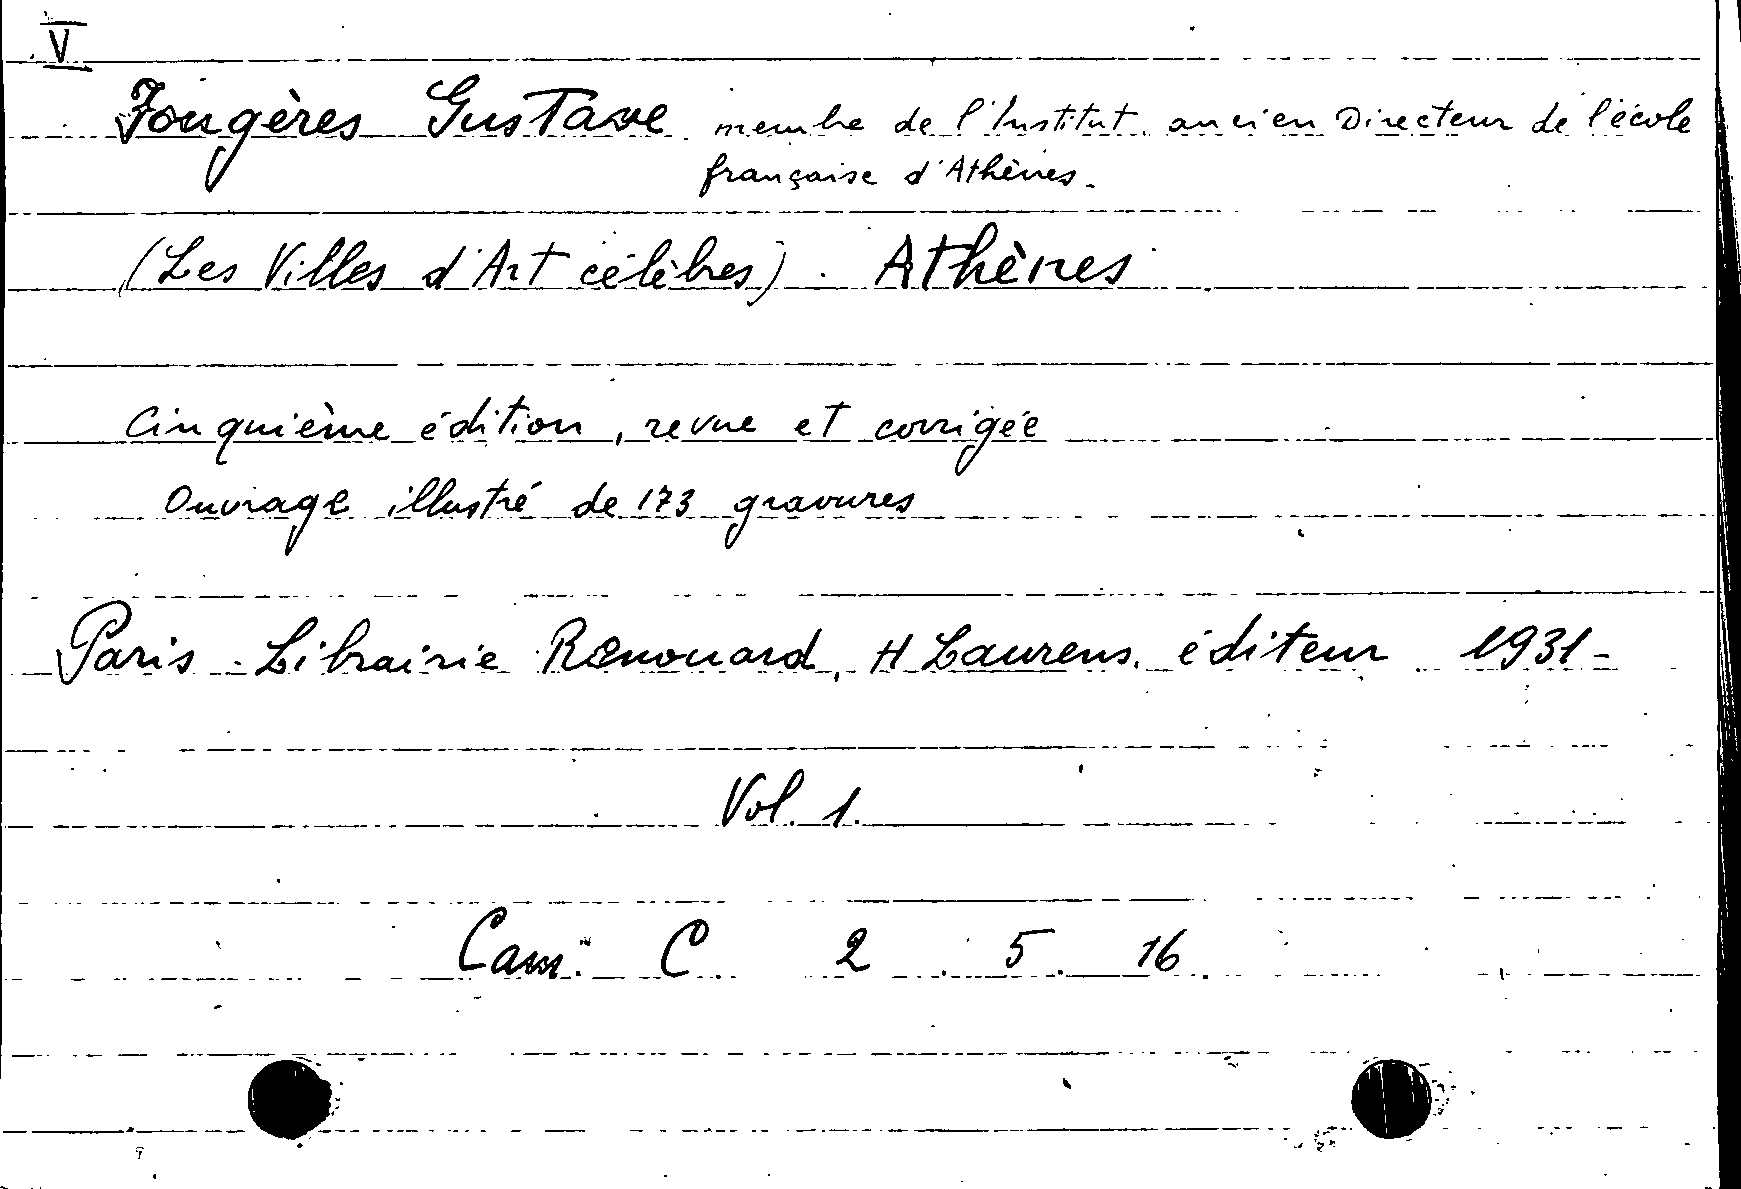 V
Fougères Gustave membre de l'Institut, ancien Directeur de l'école
française d'Athènes.
(Les Villes d'Art célèbres). Athènes
Cinquième édition, revue et corrigée
Ouvrage illustré de 173 gravures
Paris - Librairie Renouard, H Laurens, éditeur 1931-
Vol. 1.
Cam: C. 2 . 5. 16.